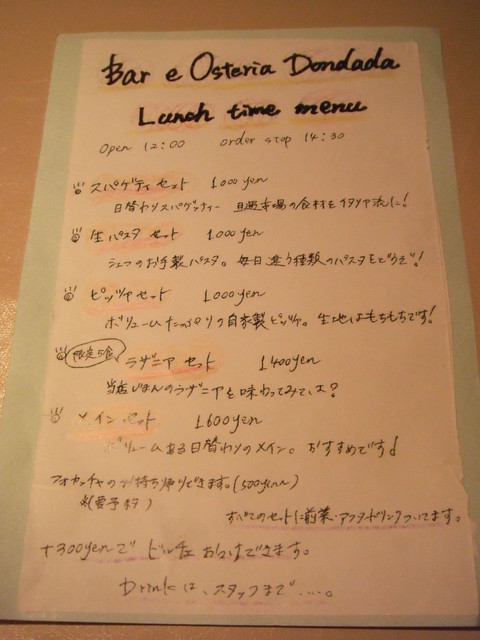 Bar e Osteria Dondada
Lunch time menu
Open 12:00 order stop 14:30
スパゲティセット 1000yen
日替わりスパゲッティー 旦過市場の食材をイタリア流に!
生パスタセット 1000yen
シェフのお手製パスタ。毎日違う種類のパスタをどうぞ!
ピッツァセット 1000yen
ボリュームたっぷりの自家製ピッツァ。生地はもちもちです!
限定5食 ラザニアセット 1400yen
当店じまんのラザニアを味わってみては?
メインセット 1600yen
ボリュームある日替わりのメイン。おすすめです!
フォカッチャのお持ち帰りできます。(500yen)
※(要予約)
すべてのセットに前菜・アフタードリンクついてます。
+300yenでドルチェおつけできます。
Drinkは、スタッフまで…。